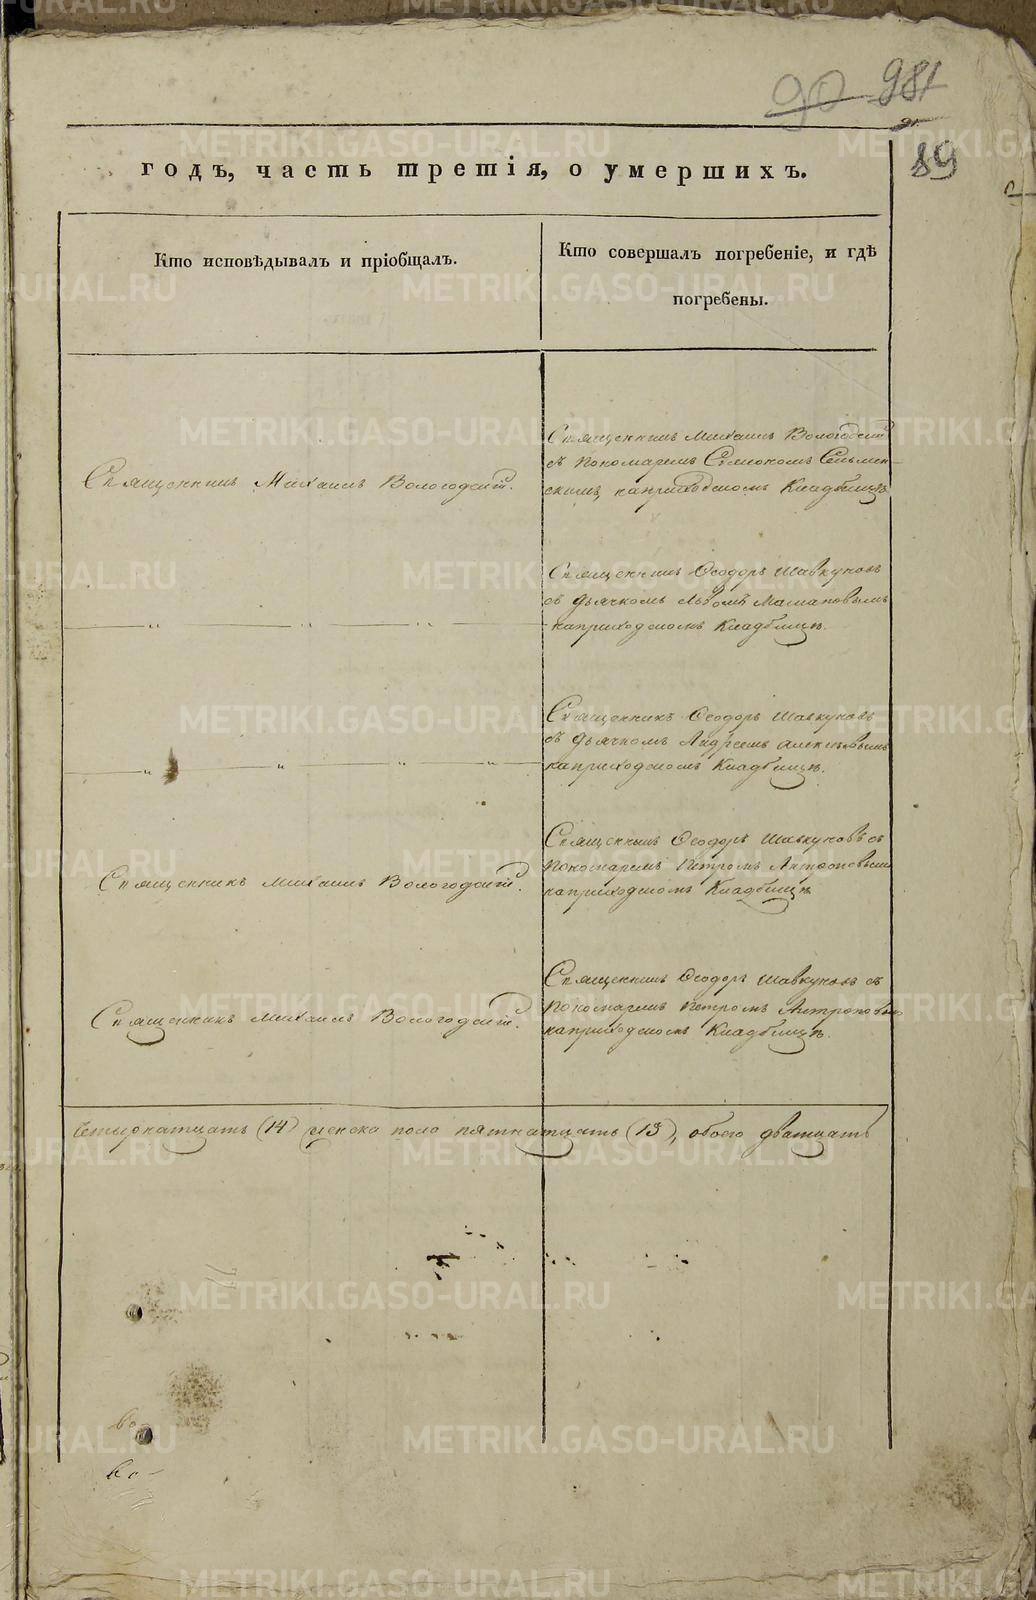 90 981
89
годъ, часть третія, о умершихъ.
Кто исповѣдывалъ и пріобщалъ.
Кто совершалъ погребеніе, и гдѣ
погребены.
Священникъ Михаилъ Вологодскій.
Священникъ Михаилъ Вологодскій
съ пономаремъ
скимъ, на приходскомъ Кладбищѣ
Священникъ Ѳеодоръ Шавкуновъ
съ дьячкомъ Львомъ Мамановымъ
на приходскомъ Кладбищѣ.
— „ — „ — „ —
Священникъ Ѳеодоръ Шавкуновъ
съ дьячкомъ Андреемъ Алексѣевымъ
на приходскомъ Кладбищѣ.
— „ — „ — „ — „
Священникъ Ѳеодоръ Шавкуновъ съ
Священникъ Михаилъ Вологодскій.
пономаремъ Петромъ Антроповымъ
на приходскомъ Кладбищѣ
Священникъ Ѳеодоръ Шавкуновъ съ
Священникъ Михаилъ Вологодскій.
пономаремъ Петромъ Антроповымъ
на приходскомъ Кладбищѣ.
Четырнатцать (14) женска пола пятнатцать (15), обоего дватцать
во-
во-
METRIKI.GASO-URAL.RU